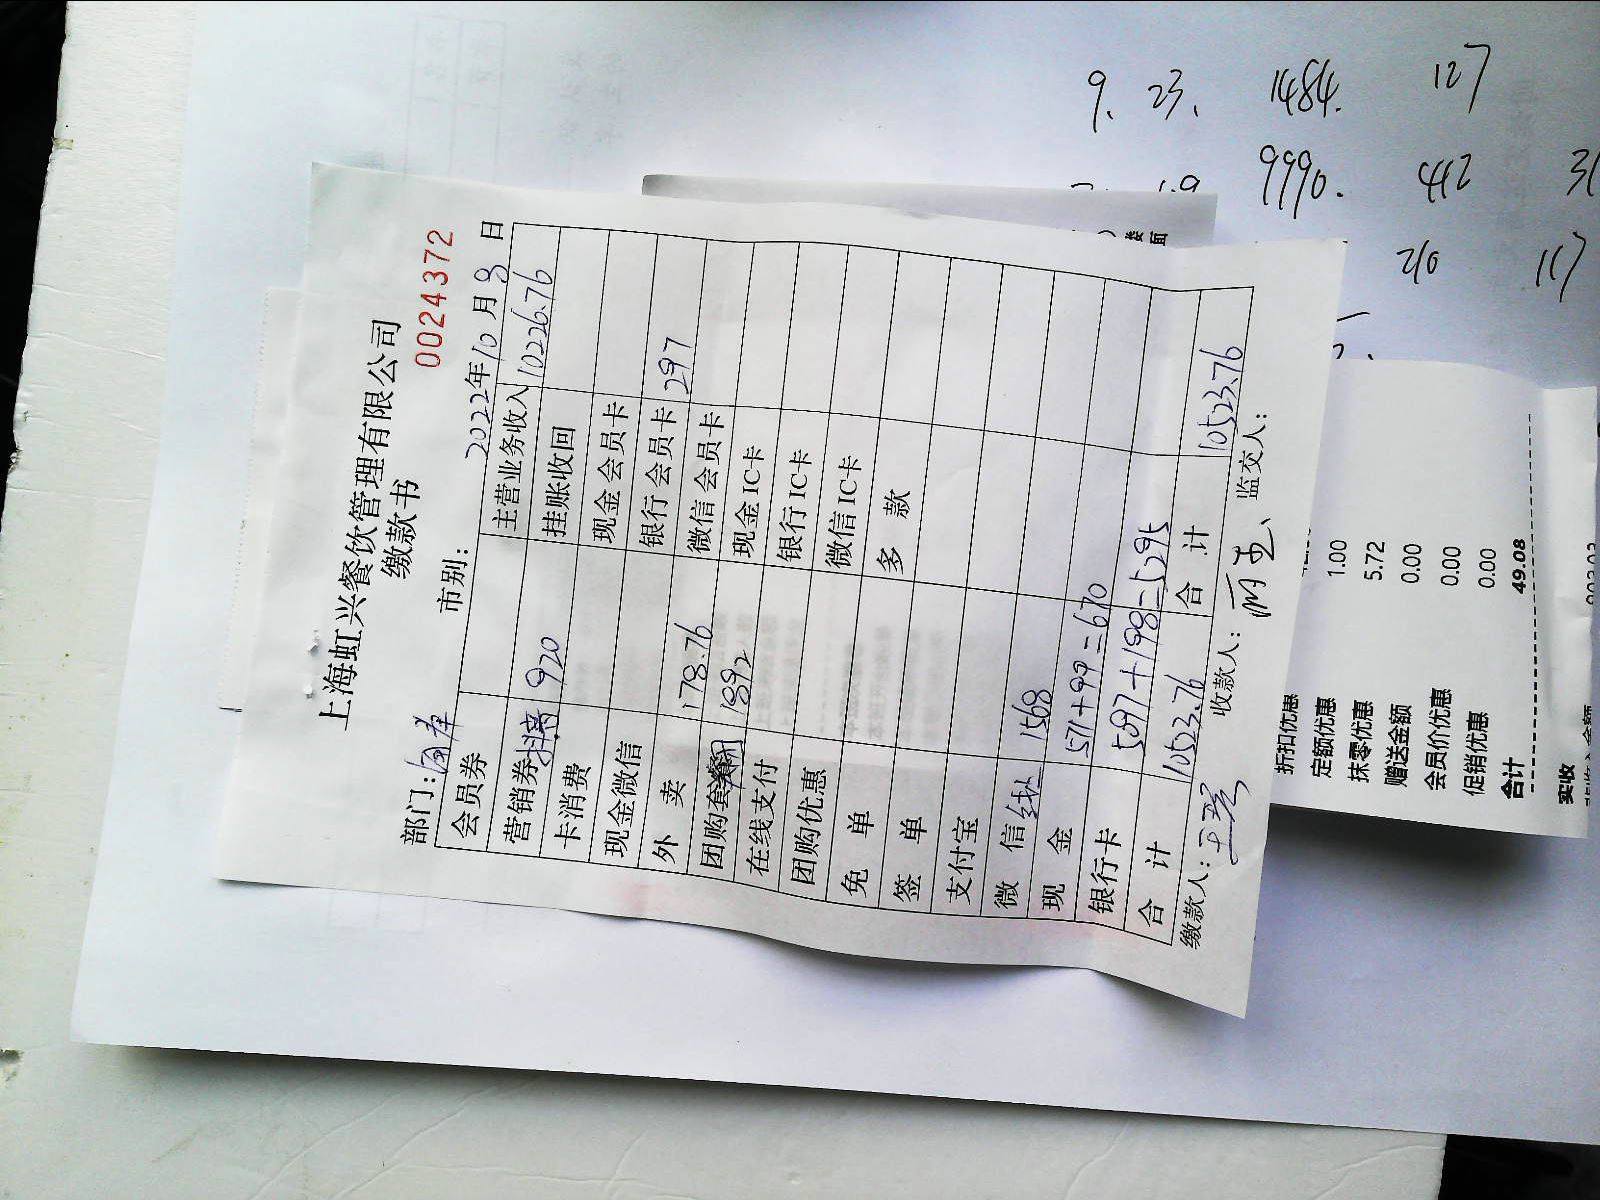 上海虹兴餐饮管理有限公司
缴款书
0024372
部门: 市别: 2022年10月8日
会员券 主营业务收入 10226.76
营销券 抖音 920 挂账收回
卡消费 现金会员卡
现金微信 银行会员卡 297
外卖 178.76 微信会员卡
团购套餐 1892 现金IC卡
在线支付 银行IC卡
团购优惠 微信IC卡
免单 多款
签单
支付宝
微信 1568
现金 571+99=670
银行卡 5097+198=5295
合计 10523.76 合计 10523.76
缴款人: 收款人: 监交人:
9.23. 1484. 127
9990. 442 31
210 117
楼面
折扣优惠
定额优惠 1.00
抹零优惠 5.72
赠送金额 0.00
会员价优惠 0.00
促销优惠 0.00
合计 49.08
实收